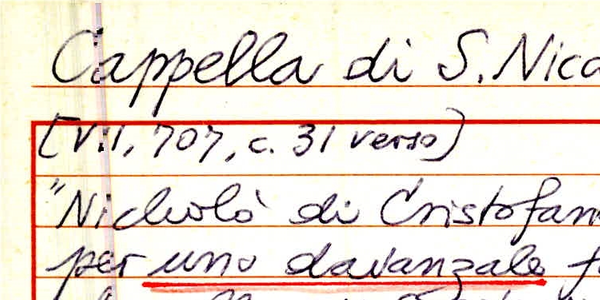 Cappella di S. Nico
[VII, 707, c. 31 verso]
"Nicholò di Cristofan
per uno davanzale f